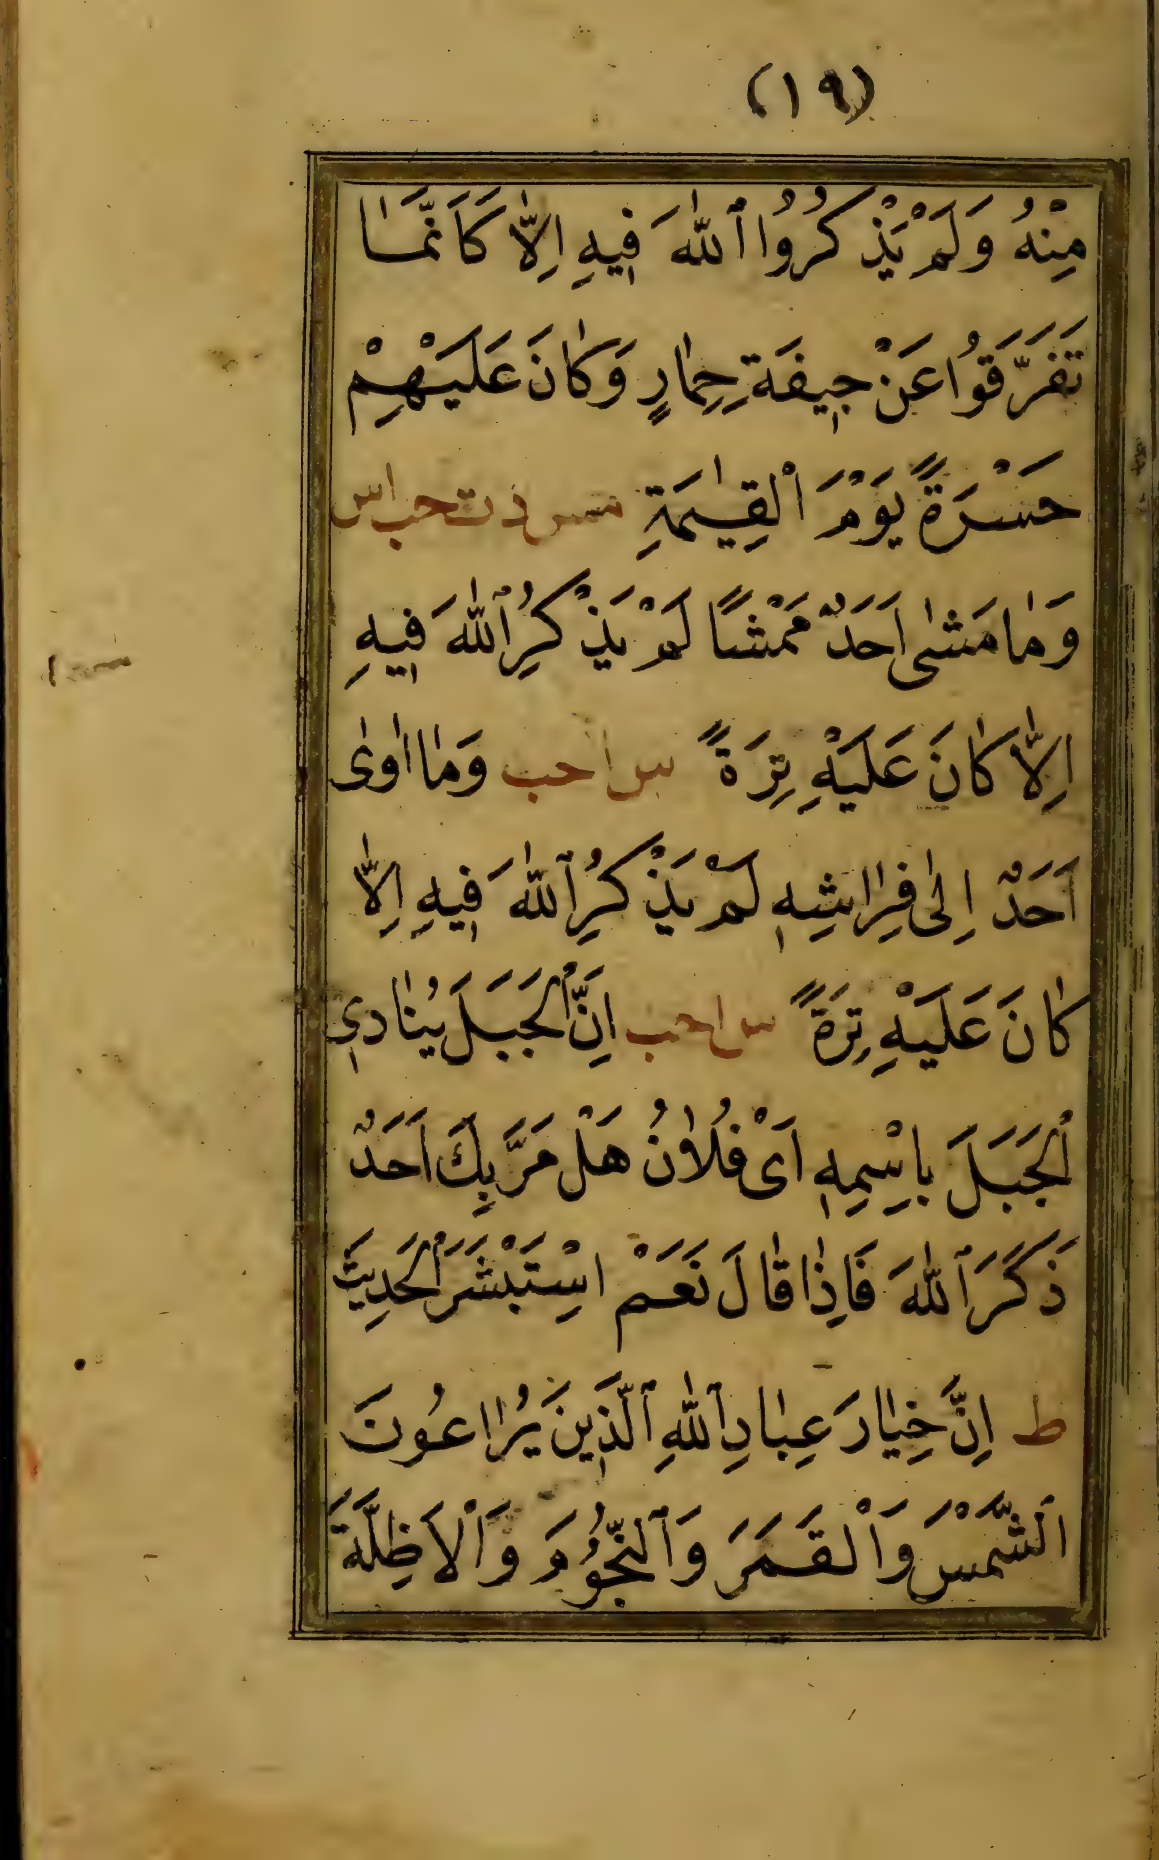 (١٩)
مِنْهُ وَلَمْ يَذْكُرُوا ٱللّٰهَ فِيهِ اِلاّٰ كَاَنَّمٰا
تَفَرَّقُوا عَنْ جِيفَةِ حِمٰارٍ وَكٰانَ عَلَيْهِمْ
حَسْرَةً يَوْمَ الْقِيٰمَةِ مس د ت حب اس
وَمٰا مَشٰى اَحَدٌ مَمْشًا لَمْ يَذْكُرِ ٱللّٰهَ فِيهِ
اِلاّٰ كٰانَ عَلَيْهِ تِرَةً س ا حب وَمٰا اٰوٰى
اَحَدٌ اِلٰى فِرٰاشِهِ لَمْ يَذْكُرِ ٱللّٰهَ فِيهِ اِلاّٰ
كٰانَ عَلَيْهِ تِرَةً س ا حب اِنَّ الْجَبَلَ يُنٰادِي
الْجَبَلَ بِاسْمِهِ اَىْ فُلاٰنُ هَلْ مَرَّ بِكَ اَحَدٌ
ذَكَرَ ٱللّٰهَ فَاِذٰا قٰالَ نَعَمْ اسْتَبْشَرَ الْحَدِيثَ
ط اِنَّ خِيٰارَ عِبٰادِ ٱللّٰهِ ٱلَّذِينَ يُرٰاعُونَ
الشَّمْسَ وَالْقَمَرَ وَٱلنُّجُومَ وَالْاَظِلَّةَ